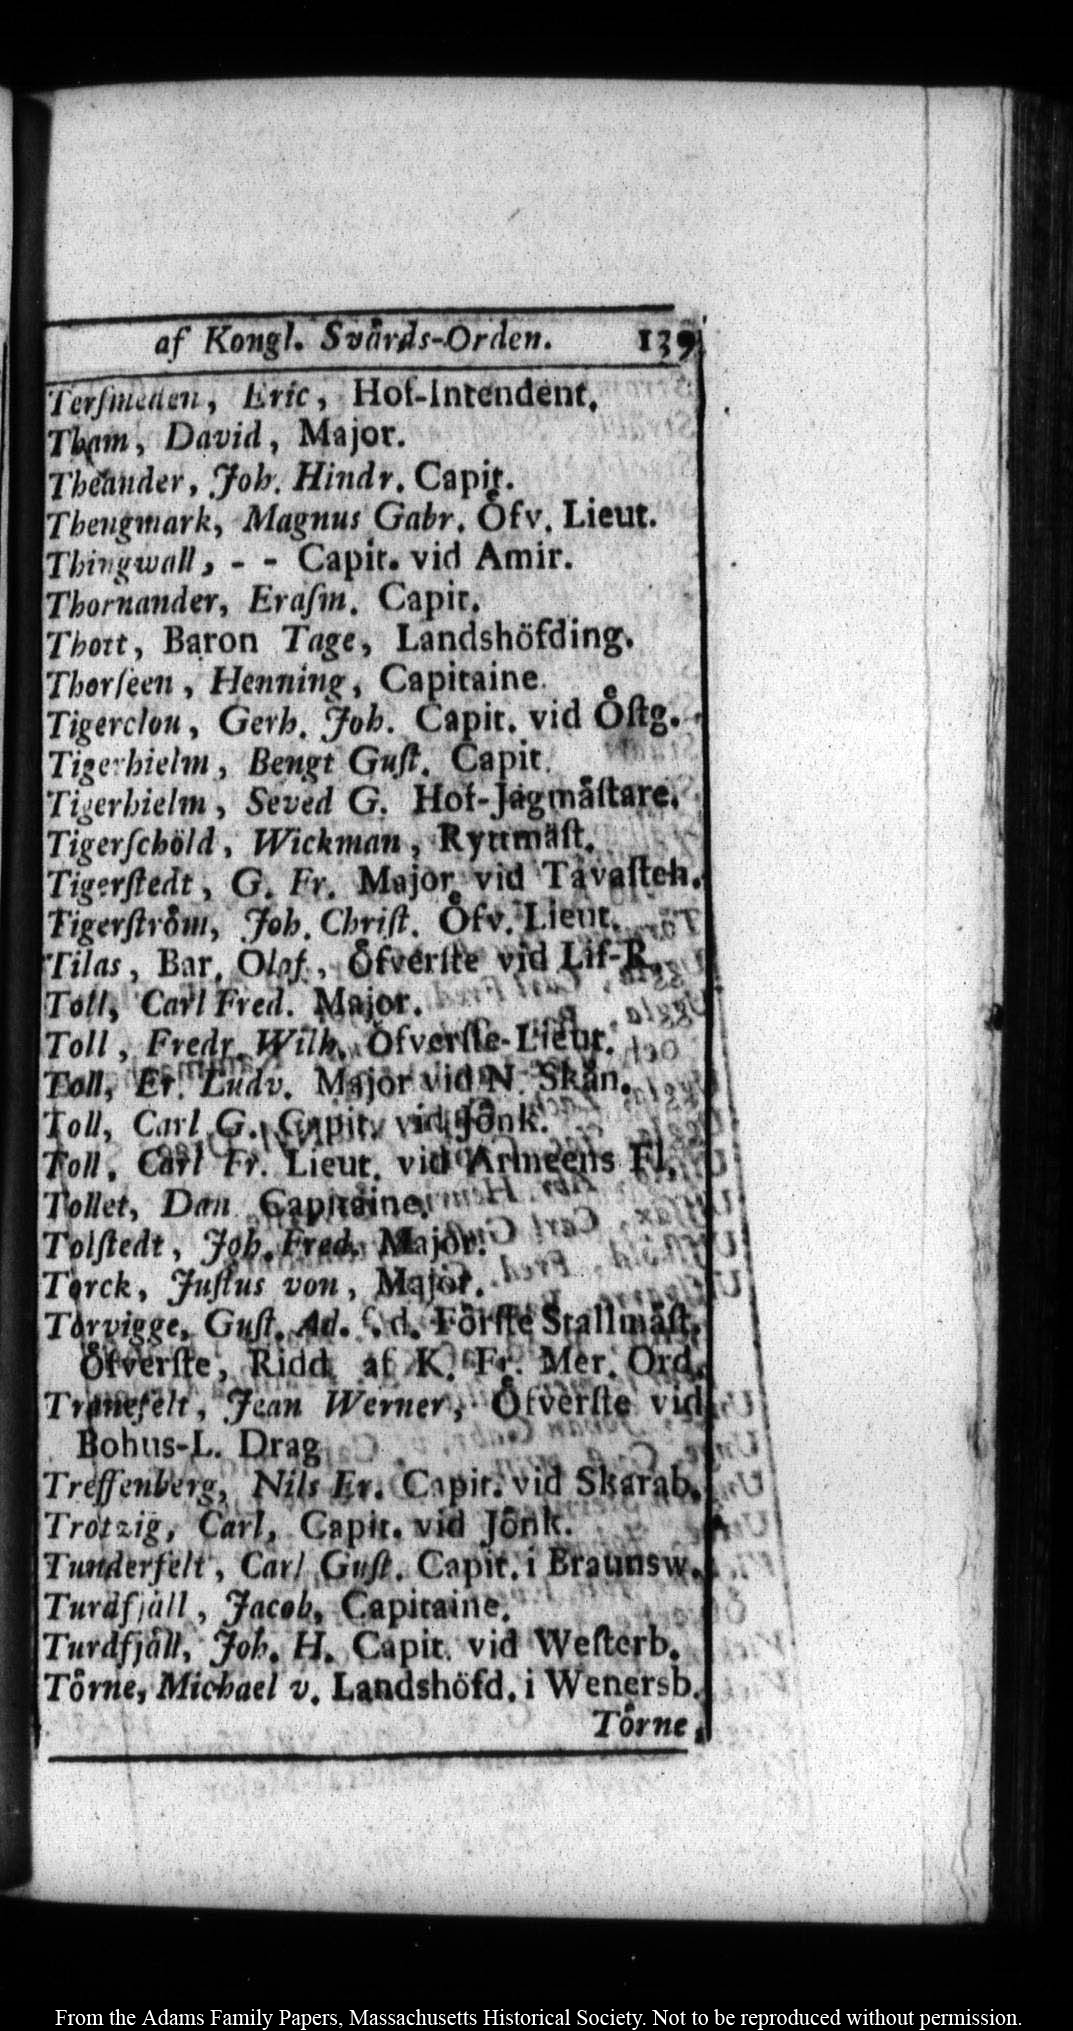 af Kongl. Svårds-Orden. 139
Terſmeden, Eric, Hof-Intendent.
Tham, David, Major.
Theander, Joh. Hindr. Capit.
Thengmark, Magnus Gabr. Öfv. Lieut.
Thingwall, - - Capit. vid Amir.
Thornander, Eraſm. Capit.
Thott, Baron Tage, Landshöfding.
Thorſeen, Henning, Capitaine.
Tigerclou, Gerh. Joh. Capit. vid Öſtg.
Tigerhielm, Bengt Guſt. Capit.
Tigerhielm, Seved G. Hof-Jägmåſtare.
Tigerſchöld, Wickman, Ryttmäſt.
Tigerſtedt, G. Fr. Major vid Tavaſteh.
Tigerſtröm, Joh. Chriſt. Öfv. Lieut.
Tilas, Bar. Olof, Öfverſte vid Lif-R.
Toll, Carl Fred. Major.
Toll, Fredr. Wilh. Öfverſte-Lieut.
Toll, Er. Ludv. Major vid N. Skån.
Toll, Carl G. Capit. vid Jönk.
Toll, Carl Fr. Lieut. vid Armeens Fl.
Tollet, Dan. Capitaine.
Tolſtedt, Joh. Fred. Major.
Torck, Juſtus von, Major.
Torvigge, Guſt. Ad. f. d. Förſte Stallmäſt.
Öfverſte, Ridd. af K. Fr. Mer. Ord.
Tranefelt, Jean Werner, Öfverſte vid
Bohus-L. Drag
Treffenberg, Nils Er. Capit. vid Skarab.
Trotzig, Carl, Capit. vid Jönk.
Tunderfelt, Carl Guſt. Capit. i Braunsw.
Turdfjäll, Jacob, Capitaine.
Turdfjåll, Joh. H. Capit. vid Weſterb.
Törne, Michael v. Landshöfd. i Wenersb.
Törne,
From the Adams Family Papers, Massachusetts Historical Society. Not to be reproduced without permission.